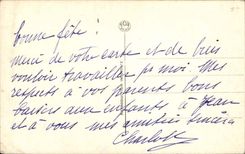 Bonne fête !
Merci de votre carte et de bien
vouloir travailler pr moi. Mes
respects à vos parents bons
baisers aux enfants à Jean
et à vous mes amitiés sincères
Charlotte